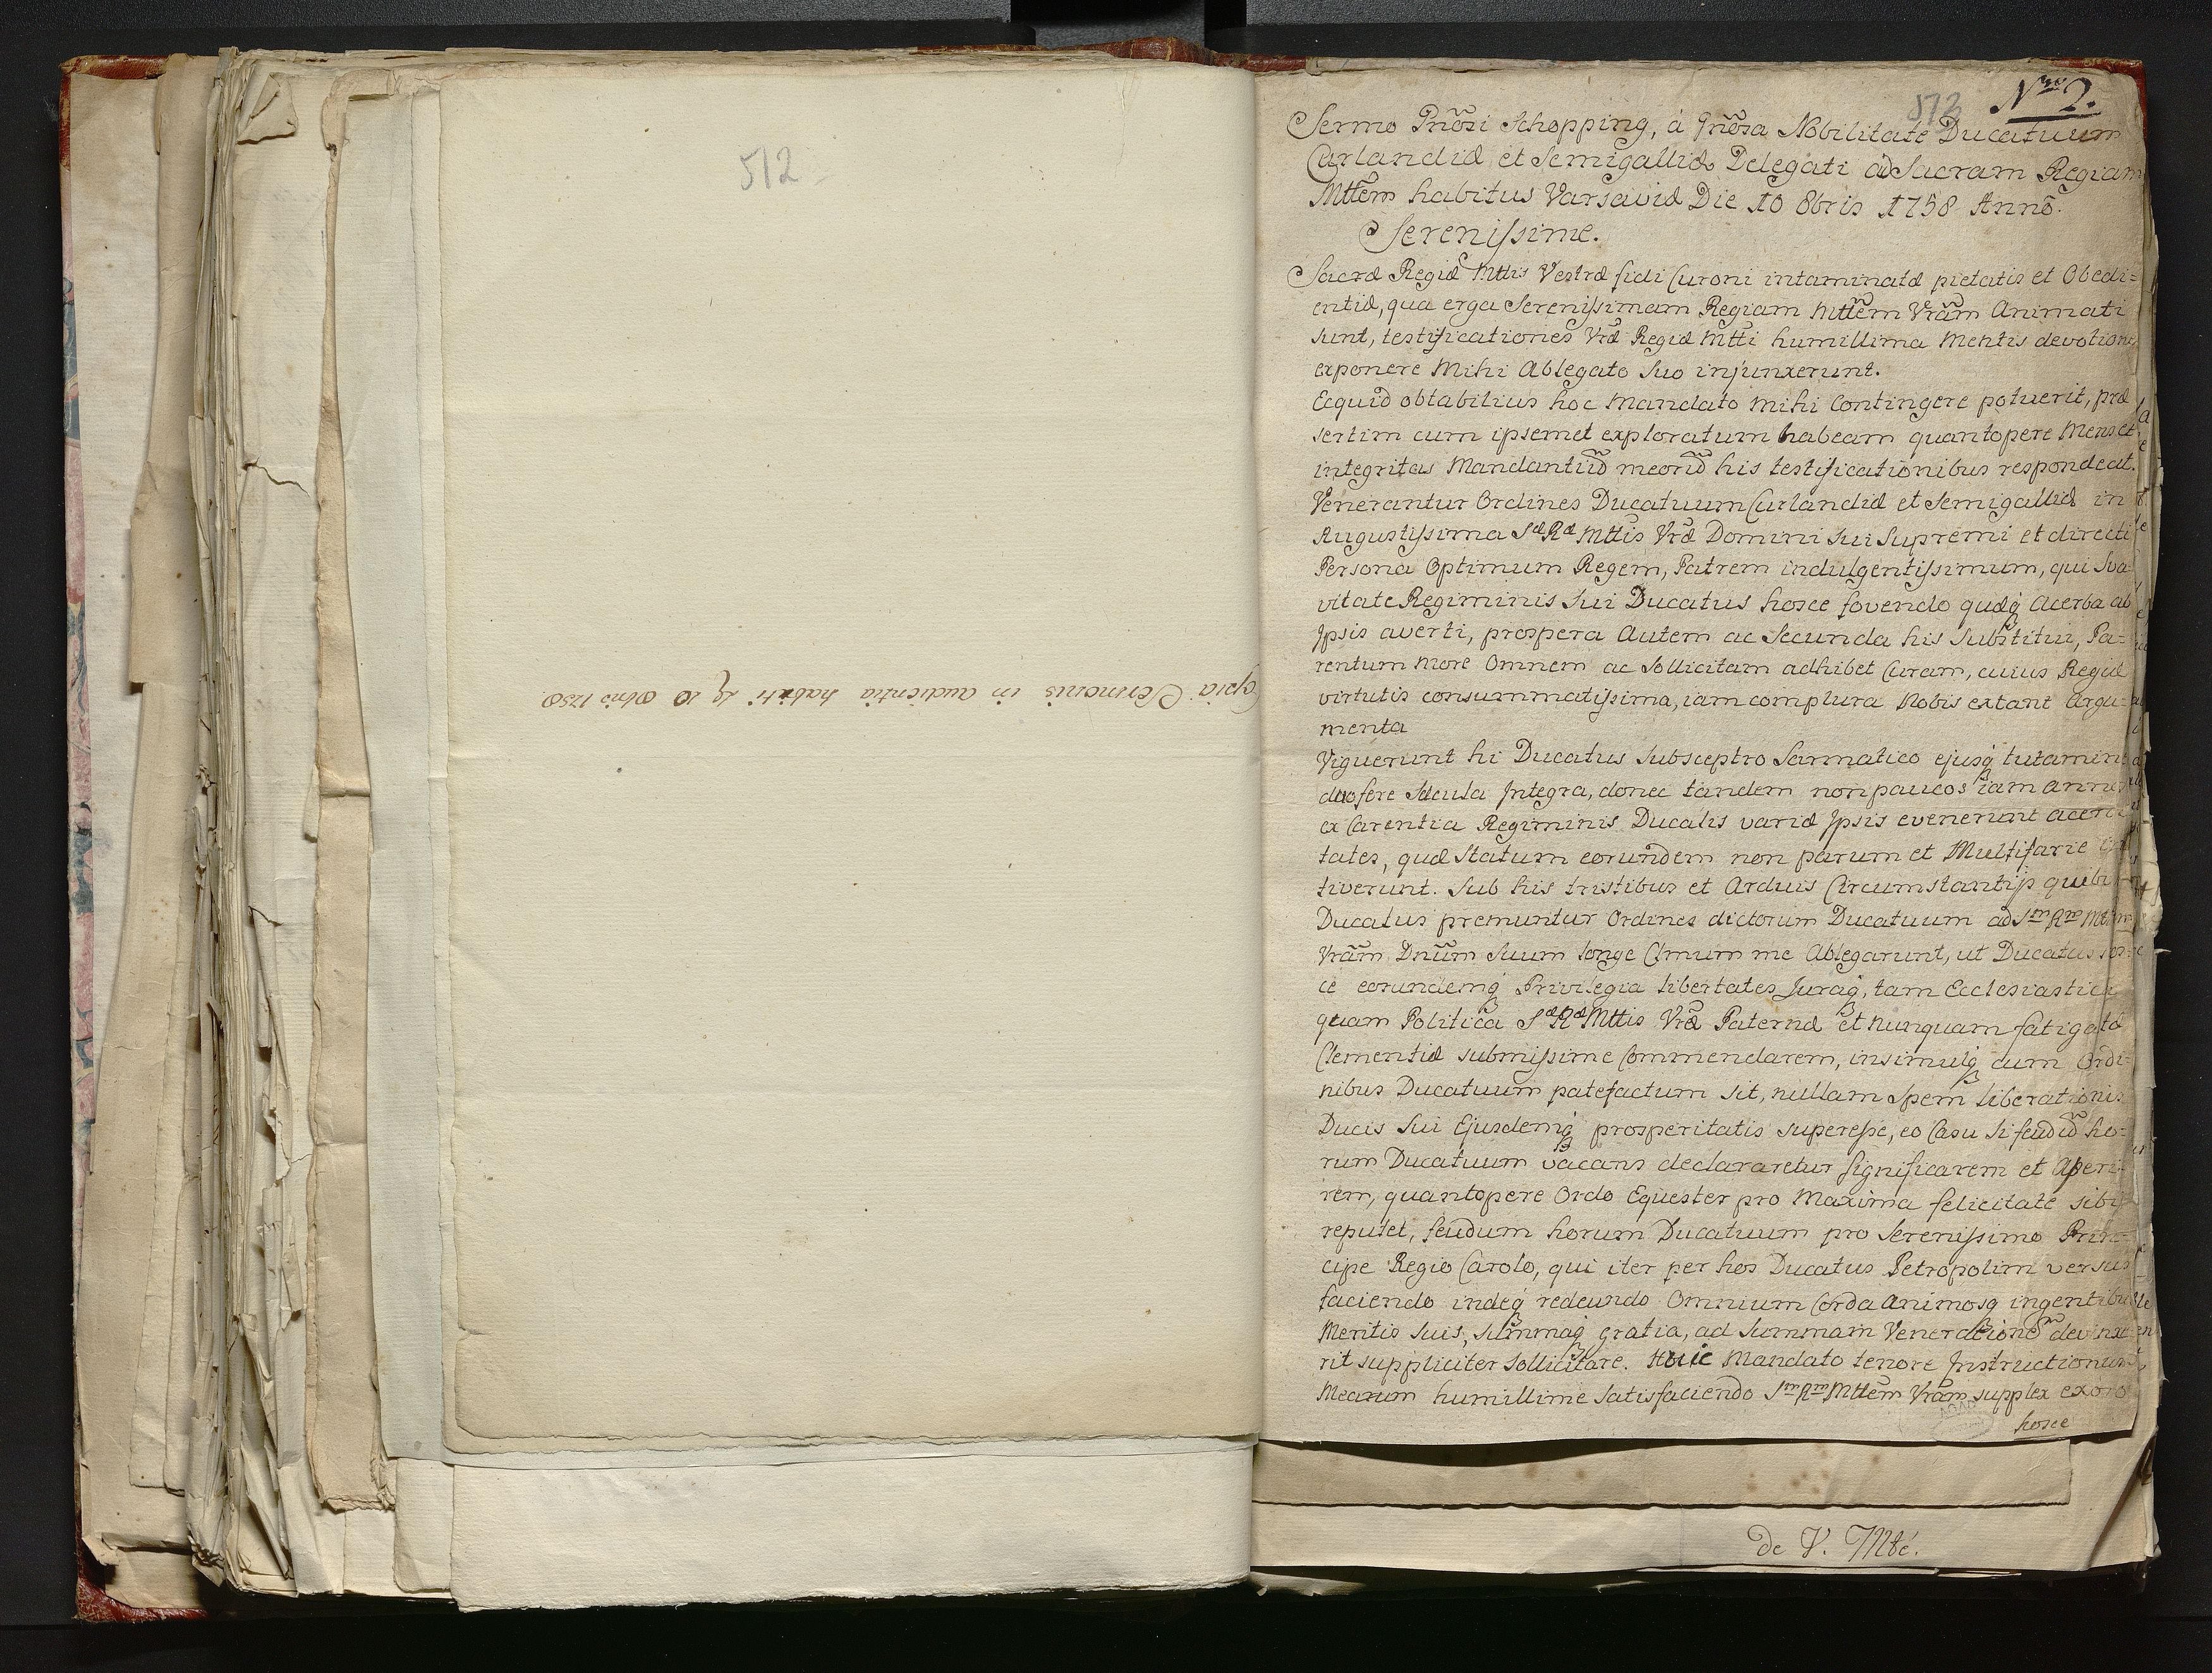 512
Copia Sermonis in audientia habiti d 10 Obris 1758.
573 Nro 2.
Sermo Gñosi Schopping, á Gñosa Nobilitate Ducatuum
Curlandiæ et Semigalliæ Delegati ad Sacram Regiam
Mttem habitus Varsaviæ Die 10 8bris 1758 Anno.
Serenissime.
Sacræ Regiæ Mttis Vestræ fidi Curoni intaminatæ pietatis et Obedi=
entiæ, qua erga Serenissimam Regiam Mttem Vram Animati
sunt, testificationes Vræ Regiæ Mtti humillima Mentis devotione
exponere Mihi Ablegato Suo injunxerunt.
Ecquid obtabilius hoc Mandato Mihi Contingere potuerit, præ
sertim cum ipsemet exploratum habeam quantopere Mens et
integritas Mandantiũ meorũ his testificationibus respondeat.
Venerantur Ordines Ducatuum Curlandiæ et Semigalliæ in
Augustissima Sæ Ræ Mttis Vræ Domini Sui Supremi et directi
Persona Optimum Regem, Patrem indulgentissimum, qui Sua
vitate Regiminis Sui Ducatus hosce fovendo quæq Acerba ab
Ipsis averti, prospera Autem ac Secunda his Substitui, Pa=
rentum More Omnem ac Sollicitam adhibet Curam, cuius Regiæ
virtutis consummatissima, iam complura Nobis extant Argu=
menta
Viguerunt hi Ducatus Subsceptro Sarmatico ejusq tutamine
duo fere Sæcula Integra, donec tandem non paucos iam annos
ex Carentia Regiminis Ducalis variæ Ipsis evenerunt acerbi
tates, quæ Statum eorundem non parum et Multifarie
tiverunt. Sub his tristibus et Arduis Circumstantijs quibus
Ducatus premuntur Ordines dictorum Ducatuum ad Sm Rm Mttem
Vram Dnum Suum longe Clmum me Ablegarunt, ut Ducatus
eorundemq Privilegia libertates Juraq, tam Ecclesiastica
quam Politica Sæ Ræ Mttis Vræ Paternæ et Nunquam fatigatæ
Clementiæ submissime Commendarem, insimulq cum Ordi=
nibus Ducatuum patefactum sit, nullam Spem liberationis
Ducis Sui Ejusdemq prosperitatis superesse, eo Casu Si feudũ ho=
rum Ducatuum vacans declararetur Significarem et Aperi=
rem, quantopere Ordo Equester pro Maxima felicitate sibi
reputet, feudum horum Ducatuum pro Serenissimo Prin=
cipe Regio Carolo, qui iter per hos Ducatus Petropolim versus
faciendo indeq redeundo Omnium Corda Animosq ingentibus
Meritis Suis, Summaq gratia, ad Summam Venerationẽ devinxe
rit suppliciter Sollicitare. Huic Mandato tenore Instructionum
Mearum humillime Satisfaciendo Sm Rm Mttem Vram supplex exoro
hosce
de V. Mté.